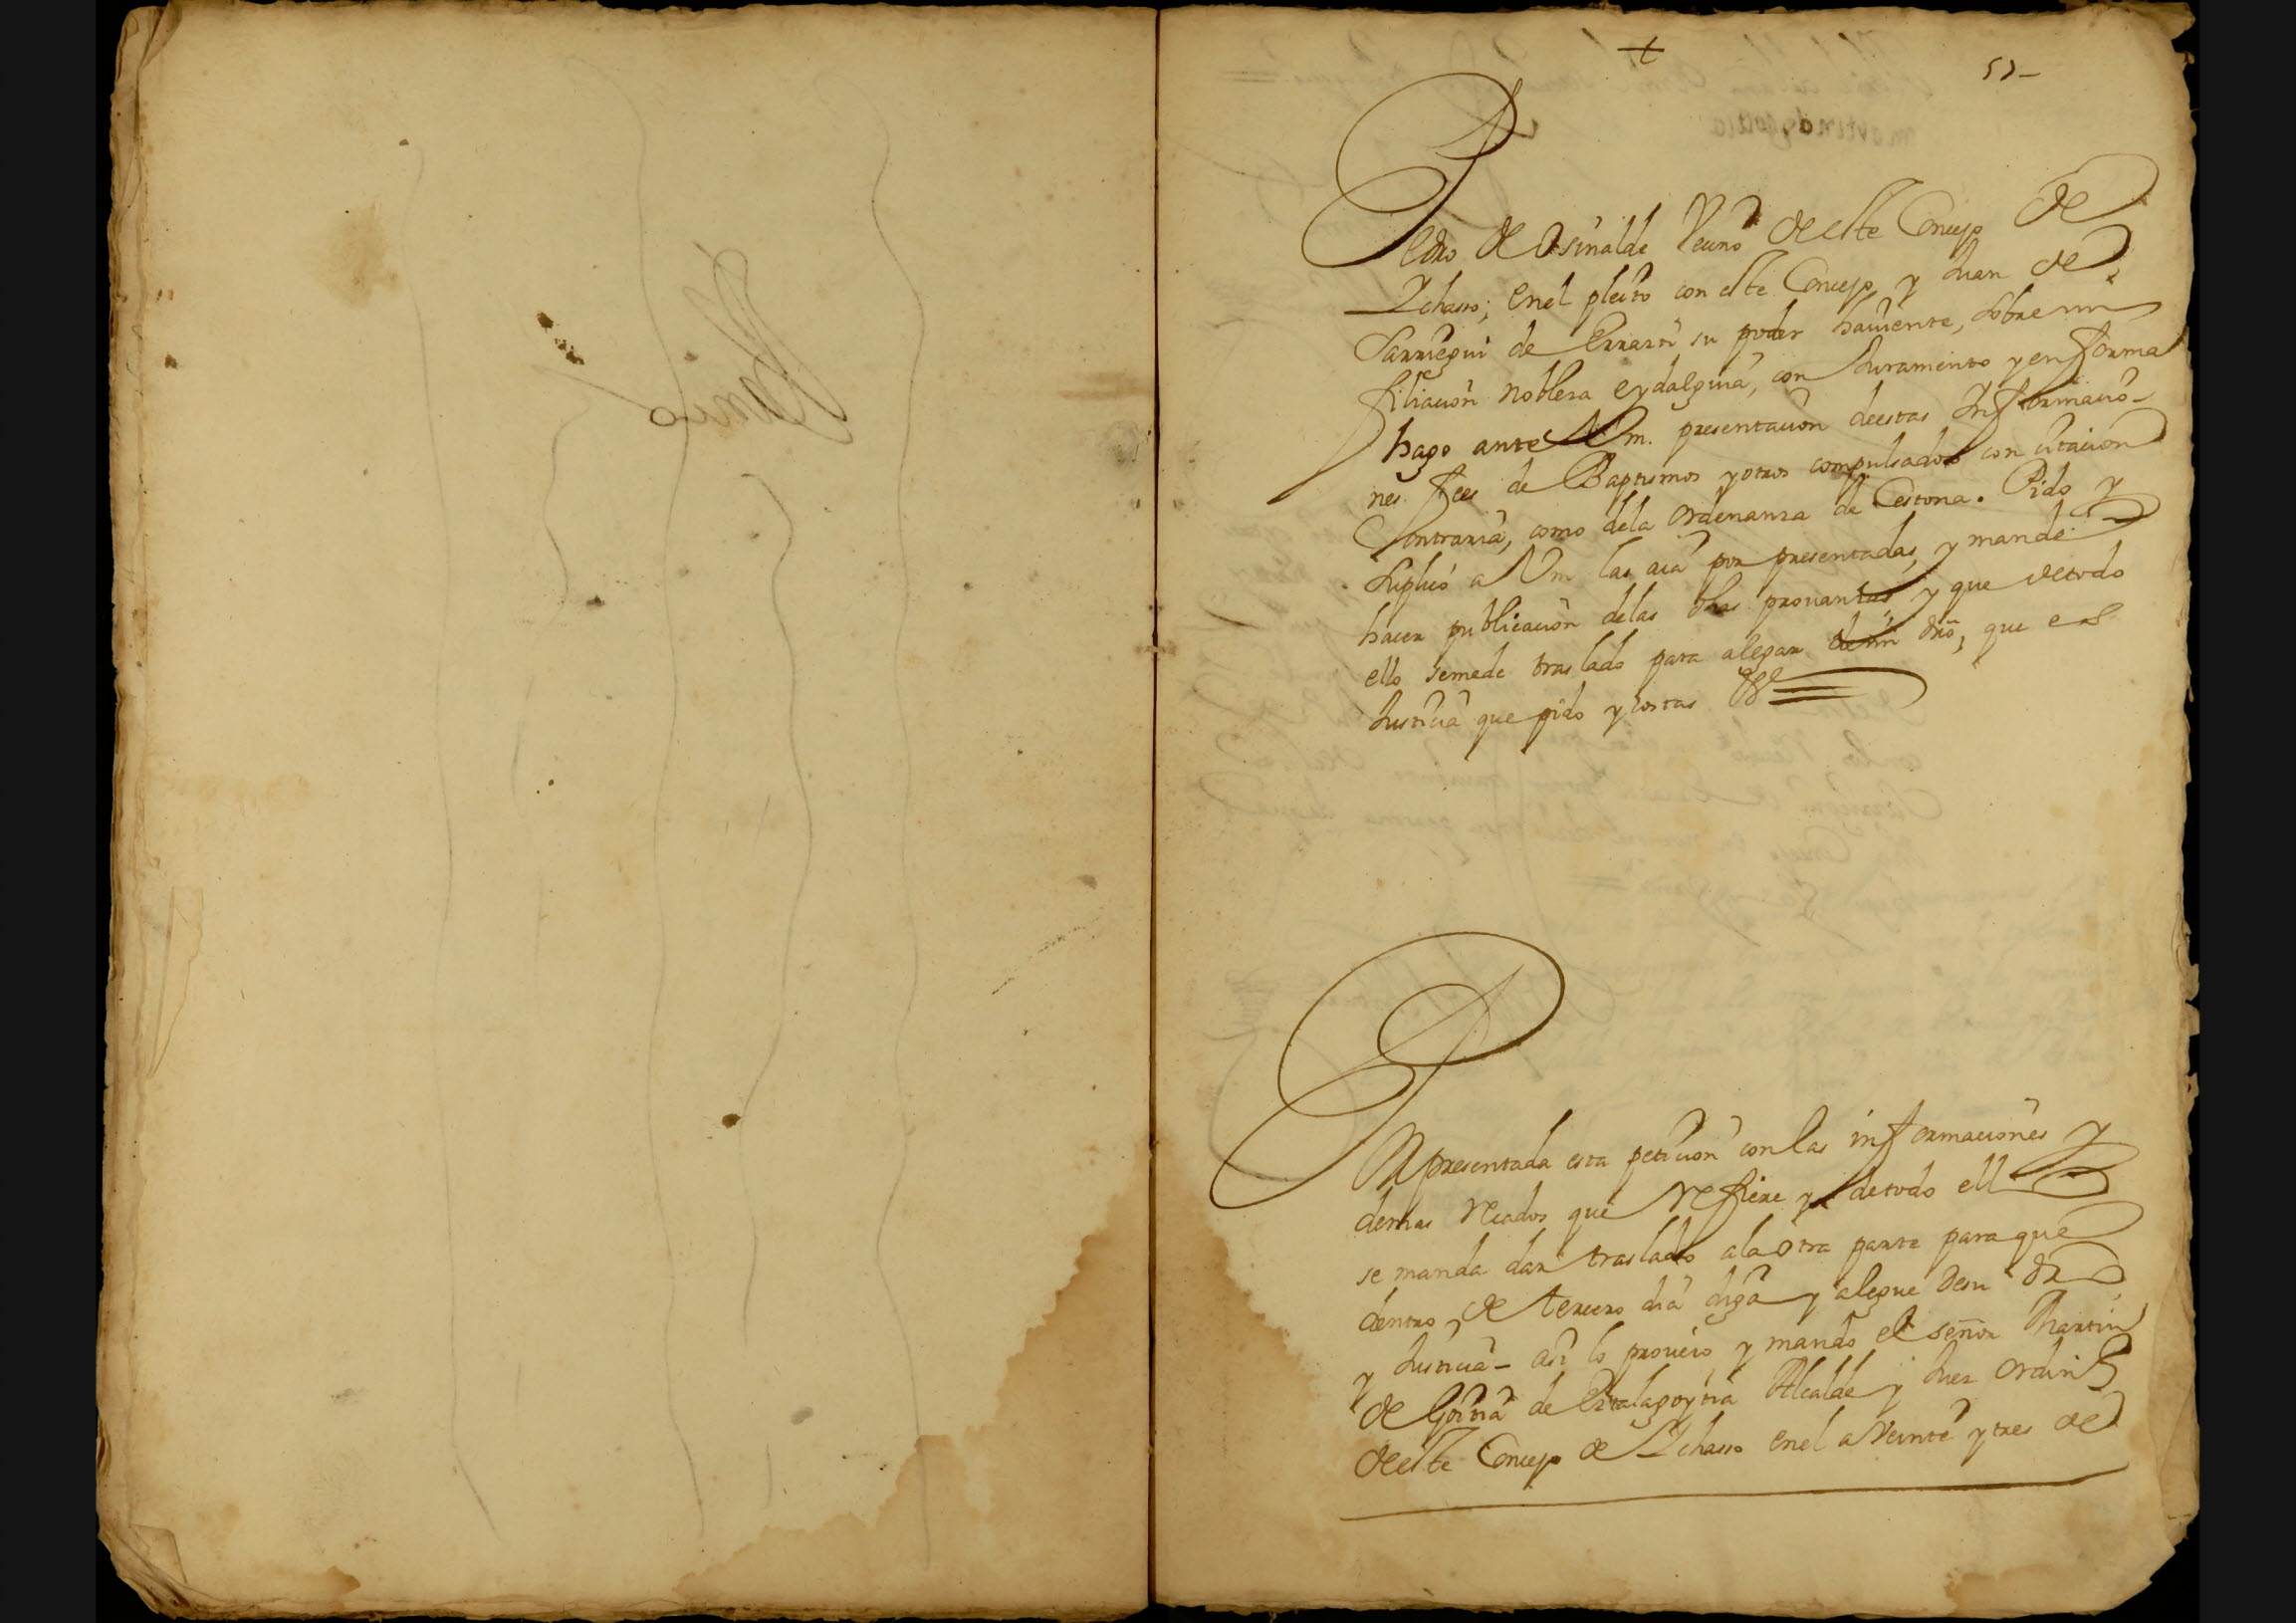 52
Pedro de Osinalde Vecino de este Concejo de
Ychasso; en el pleito con este Concejo, y Juan de
Sarriegui de Errarti su poder hauiente, sobre mi
filiacion nobleza e ydalguia, con Juramento y en forma
hago ante Vm. presentacion de estas Informacio-
nes fees de Baptismos y otros compulsados con citacion
Contraria, como de la ordenanza de Cestona. Pido y
suplico a Vm las aia por presentadas, y mande
hacer publicacion de las dhas prouanzas y que de todo
ello se me de traslado para alegar de mi dro, que es
Justicia que pido y costas &
Presentada esta peticion con las informaciones y
demas recados que refiere y de todo ello
se manda dar traslado a la otra parte para que
dentro de tercero dia diga y alegue de su dro
y Justicia - asi lo proueio y mando el señor Martin
de Goitia de Alcalde y Juez ordin
de este Concejo de Ychasso en el a Veinte y tres de